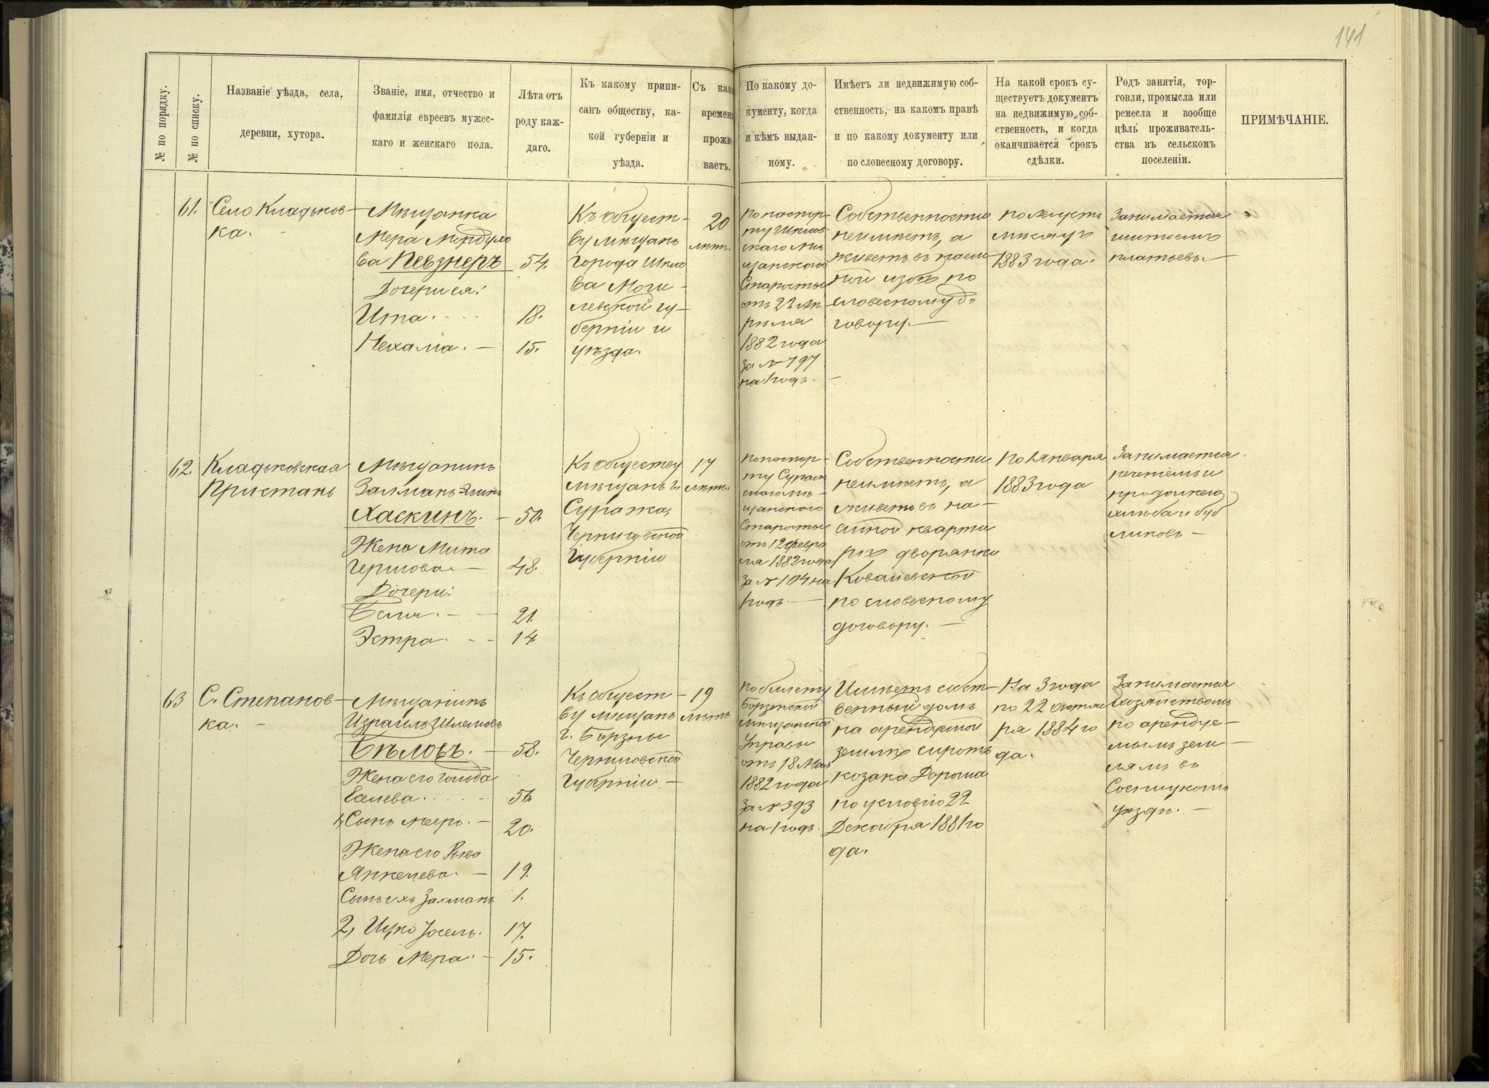 141
№ по порядку.
№ по списку.
Названіе уѣзда, села,
деревни, хутора.
Званіе, имя, отчество и
фамилія евреевъ мужес-
каго и женскаго пола.
Лѣта отъ
роду каж-
даго.
Къ какому припи-
санъ обществу, ка-
кой губерніи и
уѣзда.
Съ како
времен
прожи
ваетъ.
По какому до-
кументу, когда
и кѣмъ выдан-
ному.
Имѣетъ ли недвижимую соб-
ственность, на какомъ правѣ
и по какому документу или
по словесному договору.
На какой срокъ су-
ществуетъ документъ
на недвижимую соб-
ственность, и когда
оканчивается срокъ
сдѣлки.
Родъ занятія, тор-
говли, промысла или
ремесла и вообще
цѣль проживатель-
ства въ сельскомъ
поселеніи.
ПРИМѢЧАНІЕ.
61.
Село Кладьков-
ка.
Мѣщанка
Мера Мордухо
ва Певзнеръ 54.
Дочери ея:
Ита. 18.
Нехама. 15.
Къ общест-
ву мѣщанъ
города Шкло
ва Моги-
левской гу-
берніи и
уѣзда.
20
лѣтъ.
По паспор-
ту Шклов
скаго Мѣ
щанскаго
Старосты
отъ 22 Ап
рѣля
1882 года
за № 797
на 1 годъ.
Собственности
неимѣетъ, а
живетъ въ наем
ной избѣ по
словесному до
говору.
По Августъ
мѣсяцъ
1883 года.
Занимается
шитьемъ
платьевъ.
62.
Кладьковская
Пристань
Мѣщанинъ
Залманъ
Хаскинъ. 50.
Жена Мита
Гершова. 48.
Дочери:
Бейля. 21.
Эстра. 14
Къ обществу
мѣщанъ г.
Суража,
Черниговской
Губерніи
17
лѣтъ
По паспор-
ту Сураж
скаго мѣ-
щанского
Старосты
отъ 12 февра
ля 1882 года
за № 104 на
1 годъ
Собственности
неимѣетъ, а
живетъ въ на-
емной кварти
рѣ дворянки
Ковалевской
по словесному
договору.
По 1 Января
1883 года
Занимается
печеніемъ и
продажею
хлѣба и буб
ликовъ
63
С. Степанов-
ка.
Мѣщанинъ
Израиль Шлемовъ
Бѣловъ. 58.
Жена его Голода
Еселева. 56
1, Сынъ Мееръ. 20.
Жена его Рыва
Янкелева. 19.
Сынъ ихъ Залманъ 1.
2, Ицко Іосель. 17.
Дочь Мера. 15.
Къ общест-
ву мѣщанъ
г. Борзны
Черниговской
Губерніи
19
лѣтъ
По билету
Борзенской
мѣщанской
Управы
отъ 18 Мая
1882 года
за № 393
на 1 годъ.
Имѣетъ собст-
венный домъ
на арендуемой
землѣ сиротъ
козака Дороша
по условію 22
Декабря 1881 го
да.
На 3 года
по 22 октяб
ря 1884 го
да.
Занимается
хозяйствомъ
по арендуе-
мымъ зем-
лямъ въ
Сосницкомъ
уѣздѣ.